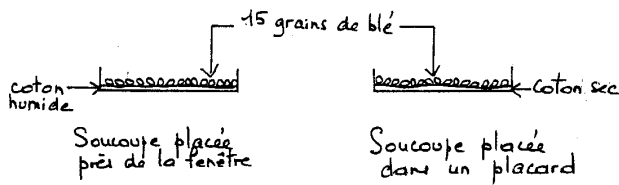 15 grains de blé
coton
humide
coton sec
Soucoupe placée
près de la fenêtre
Soucoupe placée
dans un placard